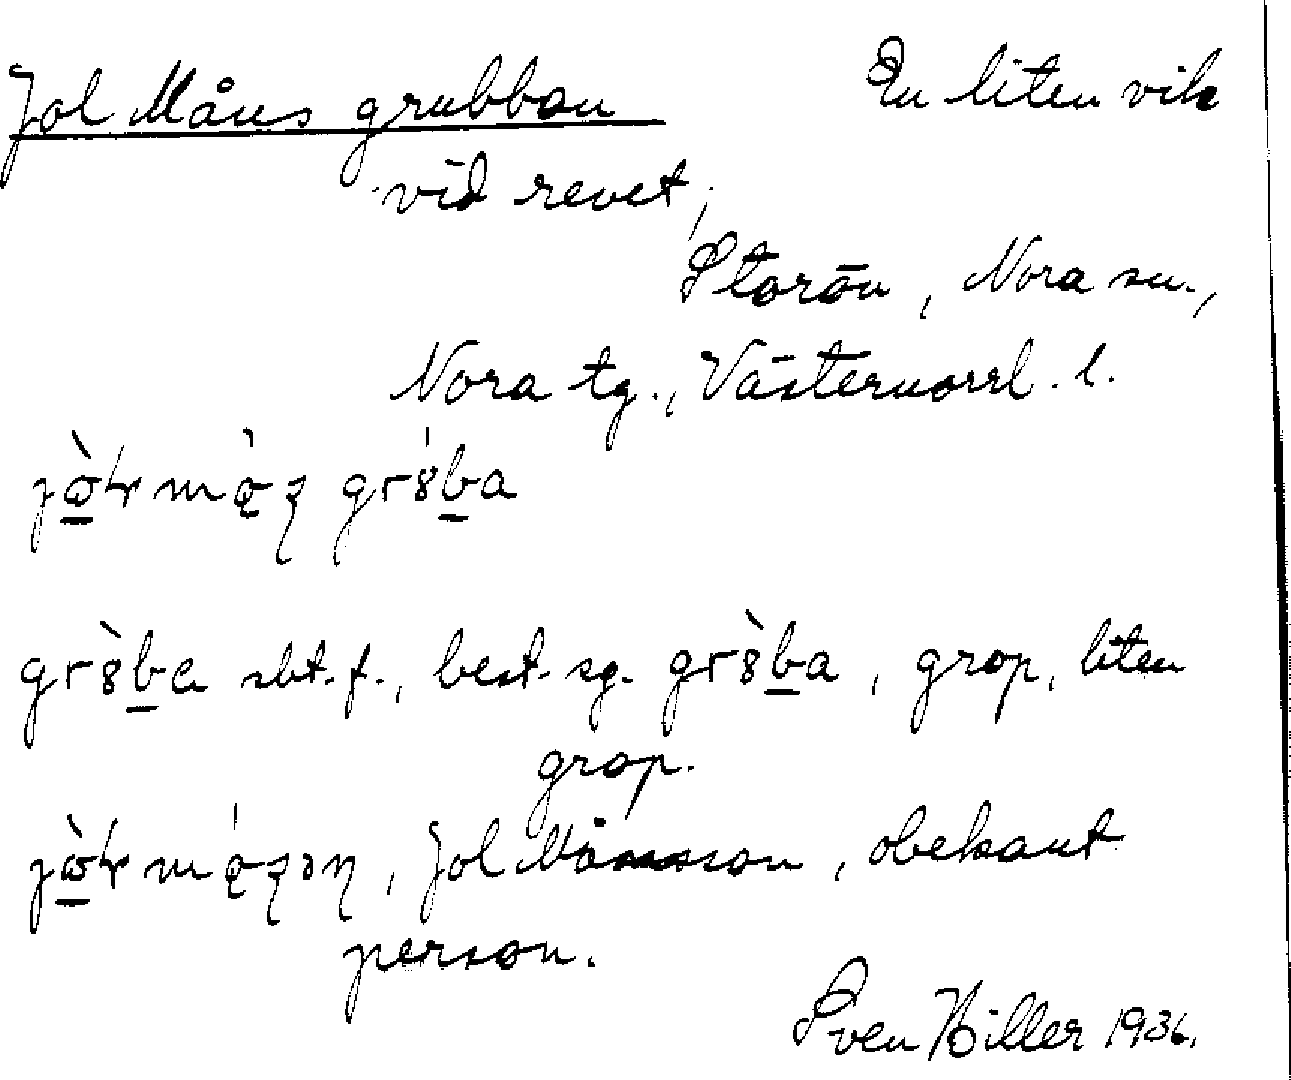 Jol Måns grubban En liten vik
vid revet,
Storön, Nora sn.,
Nora tg., Västernorrl. l.
sbt. f., best. sg. , grop, liten
grop.
, Jol Månsson, obekant
person.
Sven Hiller 1936.